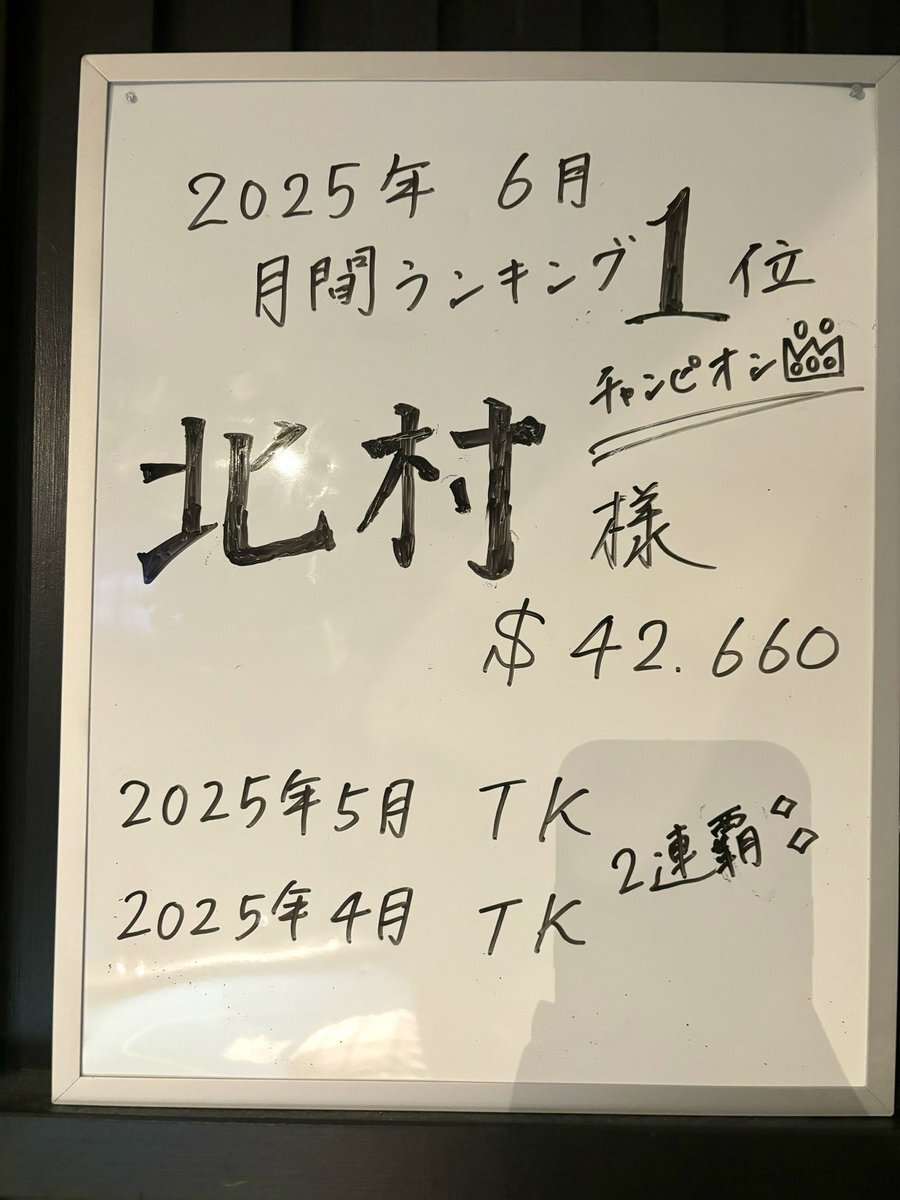 2025年 6月
月間ランキング1位
チャンピオン
北村 様
$42.660
2025年5月 TK
2連覇
2025年4月 TK